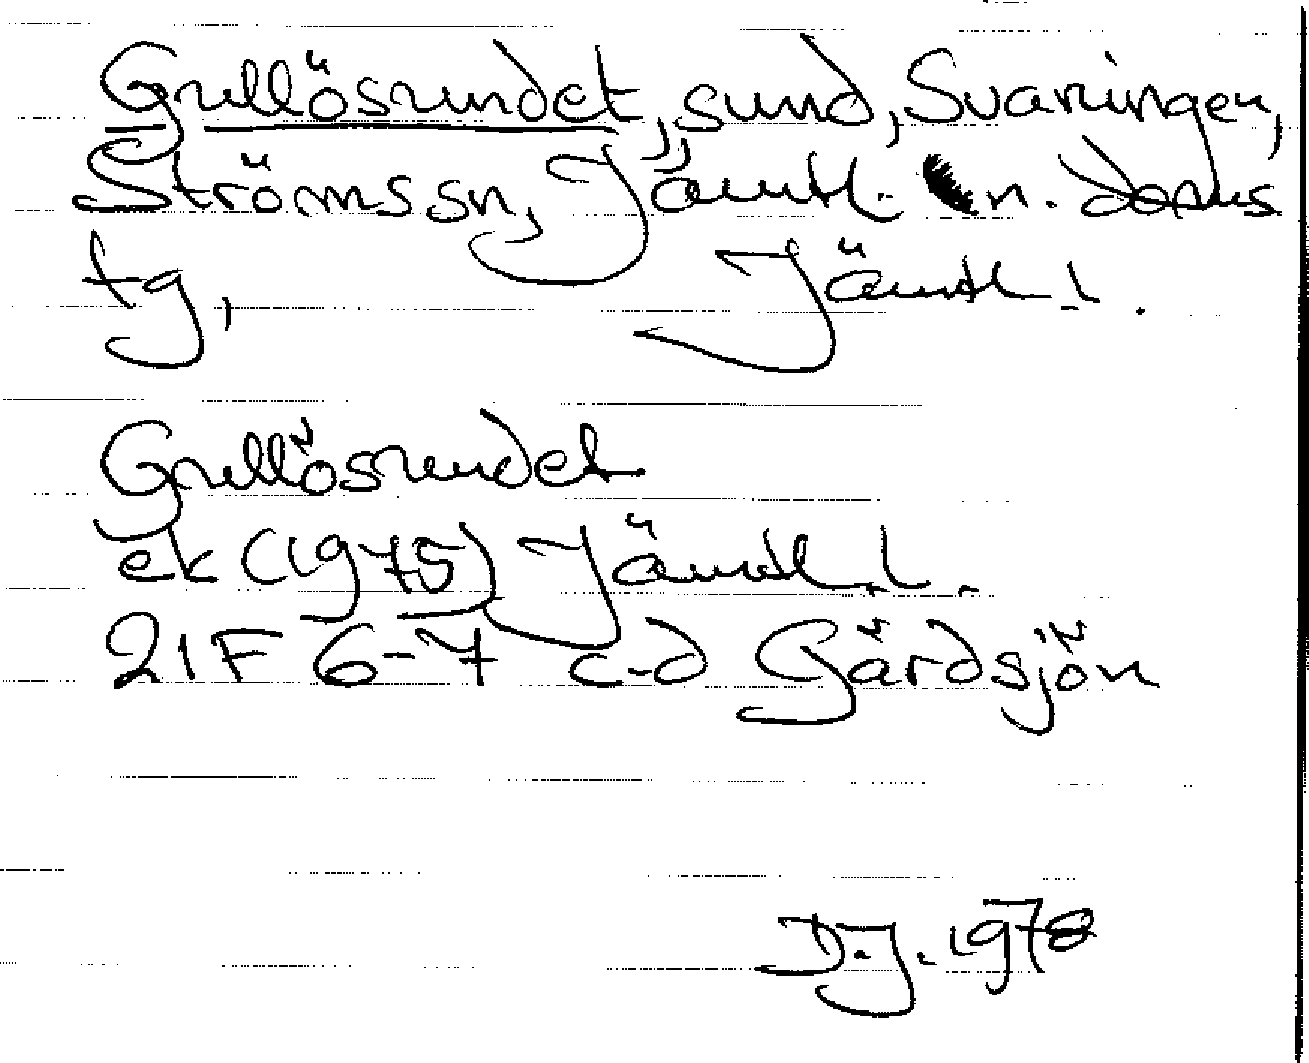 Grullösundet, sund, Svaningen,
Ströms sn, Jämtl. n. doms
tg, Jämtl. l.
Grullösundet
ek (1975) Jämtl. l.
21F 6-7 c-d Gärdsjön
D.J. 1978